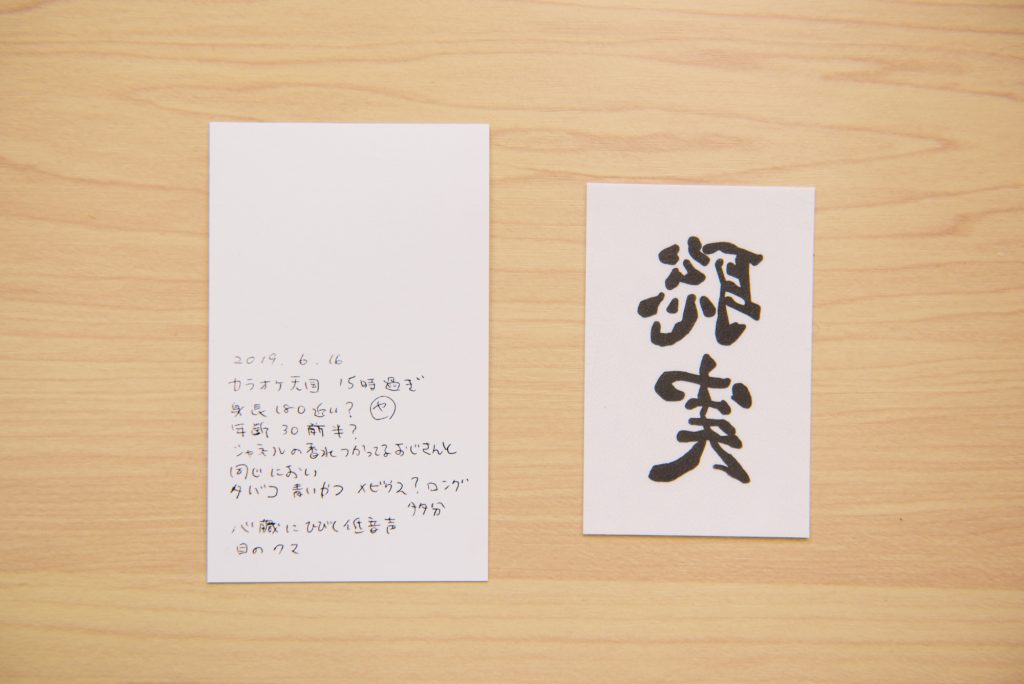 2019. 6. 16
カラオケ天国 15時過ぎ
身長180近い? ㋳
年齢 30前半?
シャネルの香水つかってるおじさんと
同じにおい
タバコ 青いやつ メビウス?ロング
多分
心臓にひびく低音声
目のクマ
聡実